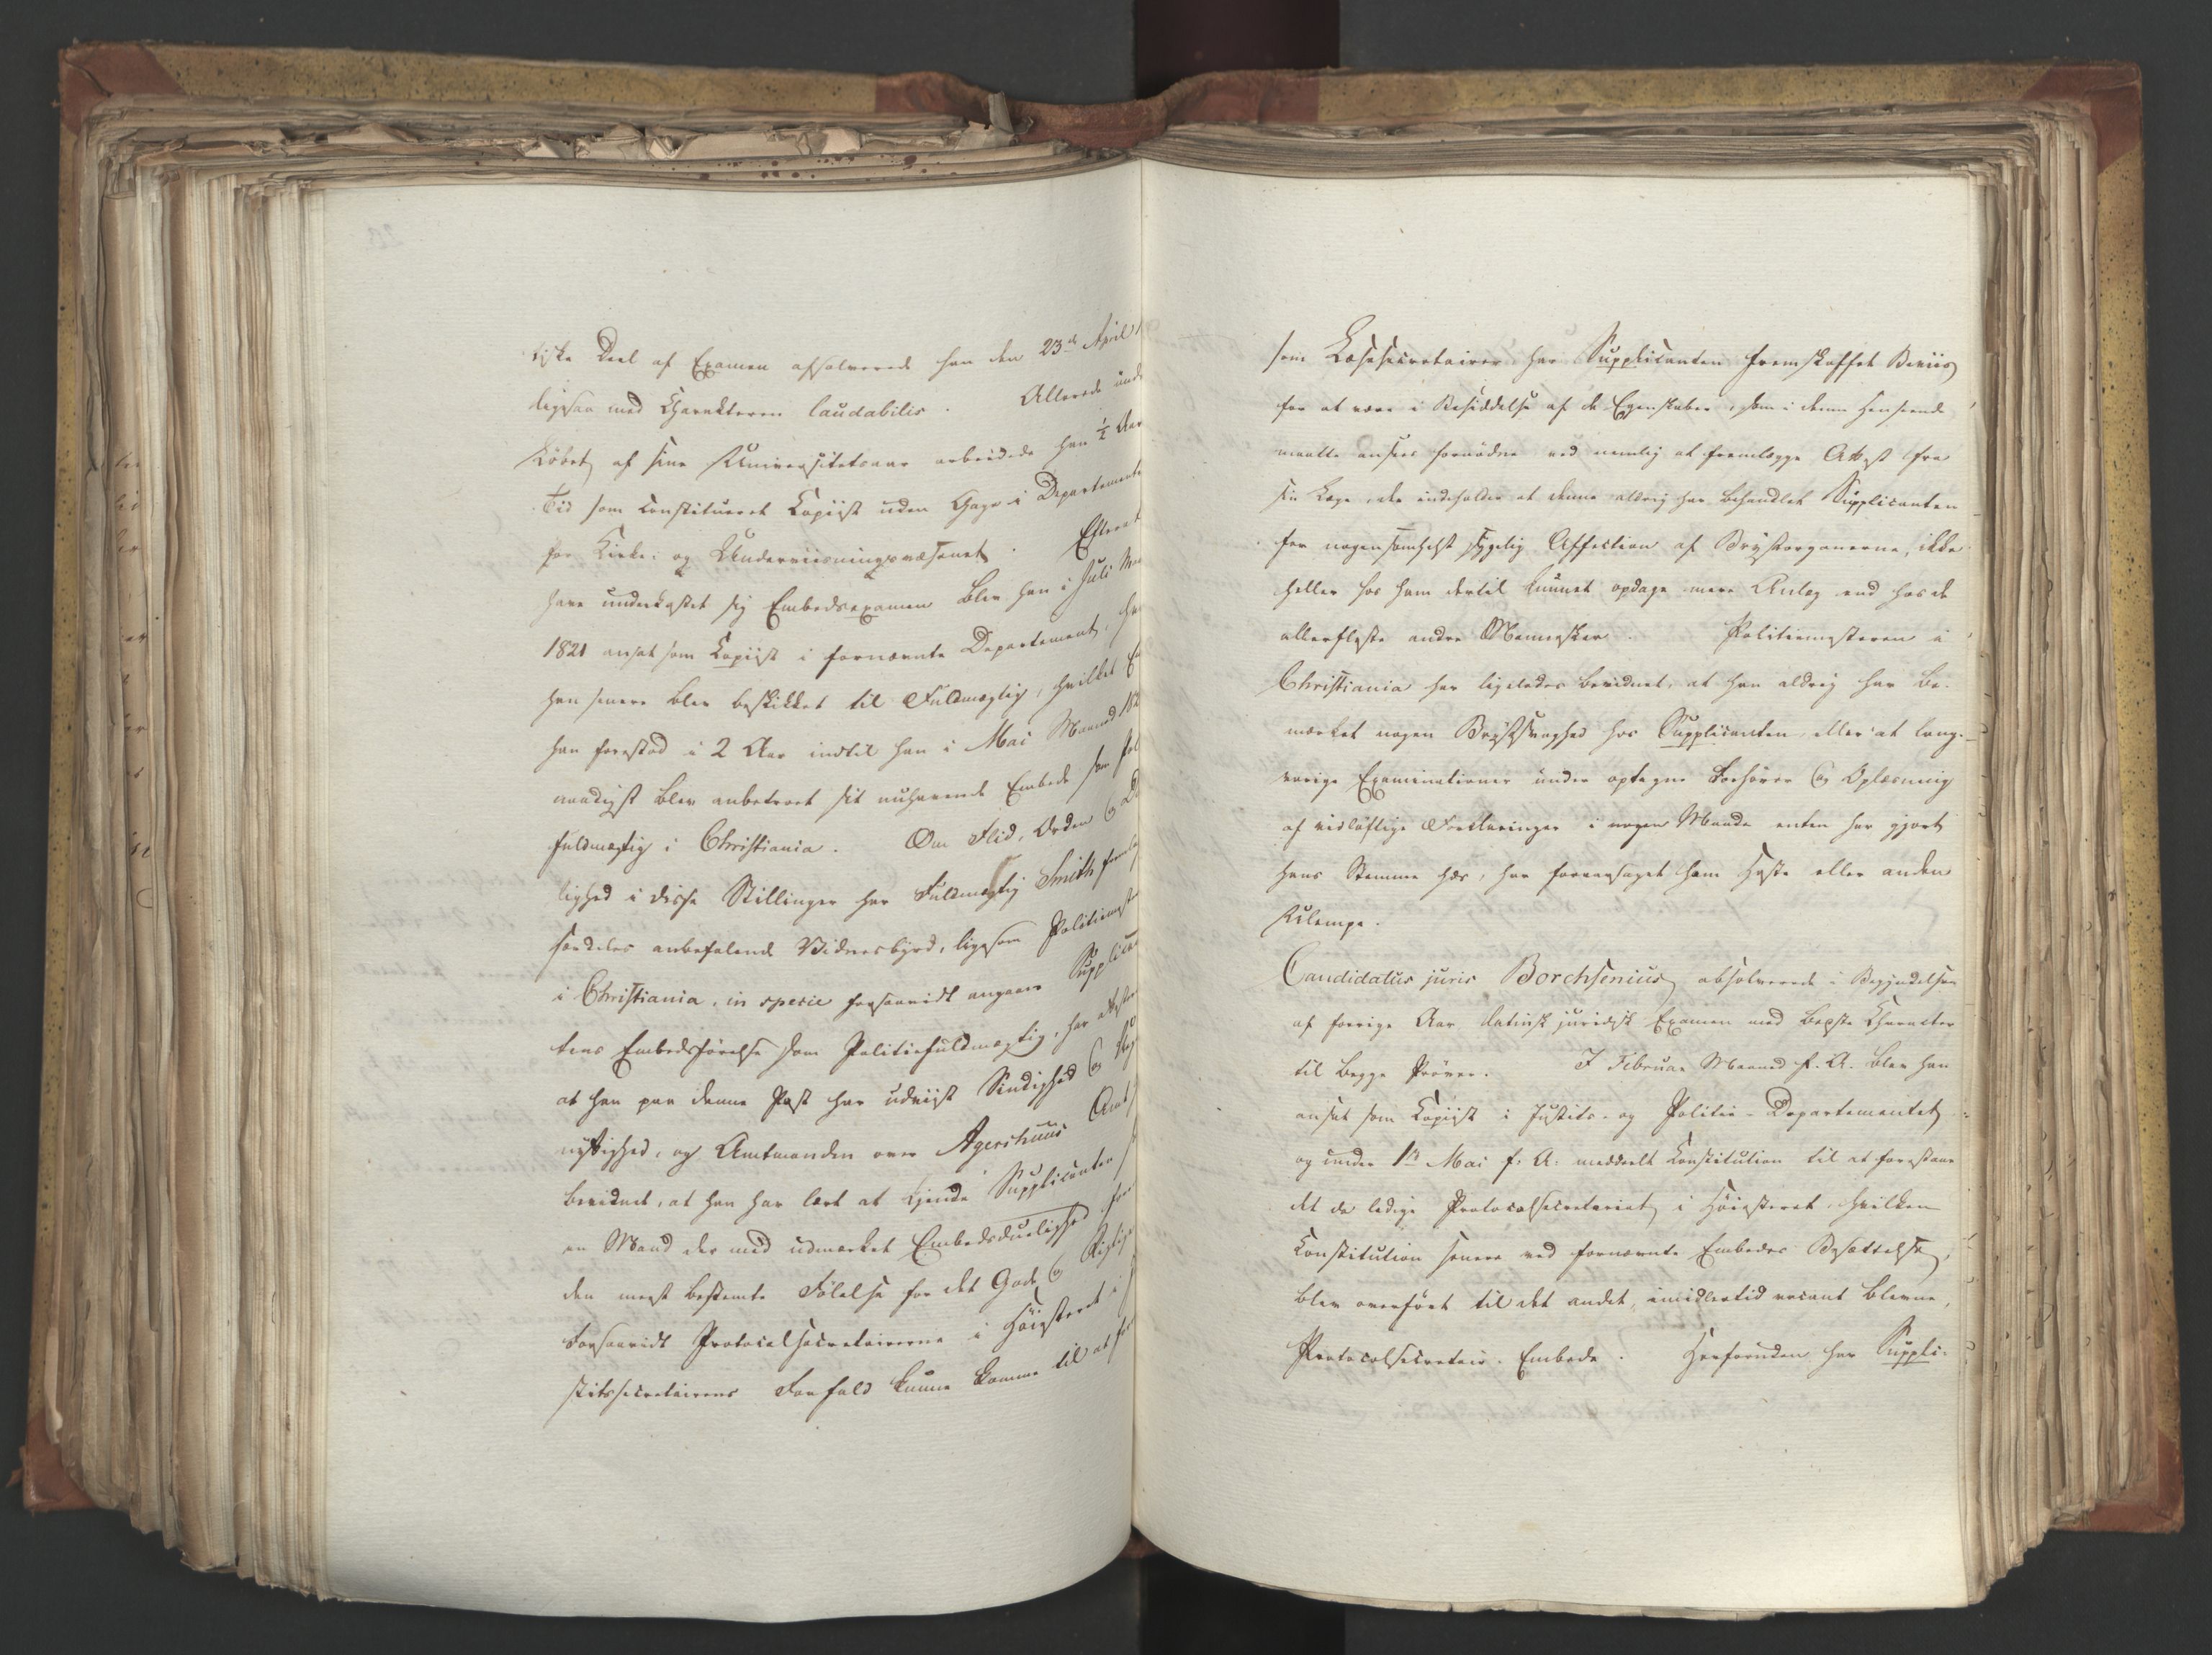 tiske Deel af Examen absolverede han den 23de April
ligesaa med Charakteren laudabilis. Allerede unde
Løbet af sine Universitetsaar arbeidede han ½ Aar
Tid som constitueret Copiist uden Gage i Departemente
for Kirke- og Underviisningsvæsenet. Efterat
have underkastet sig Embedsexamen blev han i Juli Maa
1821 ansat som Copiist i fornævnte Departement, hvo
han senere blev beskikket til Fuldmægtig, hvilket
han forestod i 2 Aar indtil han i Mai Maaned 182
naadigst blev anbetroet sit nuhavende Embede som Pol
fuldmægtig i Christiania. Om Flid, Orden og Du
lighed i disse Stillinger har Fuldmægtig Smith fremla
særdeles anbefalende Vidnesbyrd, ligesom Politimeste
i Christiania, in specie forsaavidt angaaer Supplica
tens Embedsførelse som Politiefuldmægtig, har attester
at han paa denne Post har udviist Sindighed og
nøiagtighed, og Amtmanden over Agershuus Amt
bevidnet, at han har lært at kjende Supplicanten
en Mand der med udmærket Embedsduelighed for
den meest bestemte Følelse for det Gode og Rigtige
Forsaavidt Protocolsecretairerne i Høiesteret i
stitssecretairens Forfald kunne komme til at
som Læsesecretairer har Supplicanten fremskaffet Beviis
for at være i Besiddelse af de Egenskaber, som i denne Henseende
maatte ansees fornødne ved nemlig at fremlægge Attest fra
sin Læge, der indeholder at denne aldrig har behandlet Supplicanten
for nogensomhelst sygelig Affection af Brystorganerne, ikke
heller hos ham dertil kunnet opdage mere Anlæg end hos de
allerfleste andre Mennesker. Politimesteren i
Christiania har ligeledes bevidnet, at han aldrig har be-
mærket nogen Brystsvaghed hos Supplicanten, eller at lang-
varige Examinationer under optagne Forhører og Oplæsning
af vidløftige Forklaringer i nogen Maade enten har gjort
hans Stemme hæs, har foraarsaget ham Hoste eller anden
Ulempe.
Candidatus juris Borchsenius absolverede i Begyndelsen
af forrige Aar latinsk juridisk Examen med bedste Character
til begge Prøver. I Februar Maaned f. A. blev han
ansat som Copiist i Justits- og Politie-Departementet
og under 1ste Mai f. A. meddeelt Constitution til at forestaae
det da ledige Protocolsecretariat i Høiesteret, hvilken
Constitution senere ved fornævnte Embedes Besættelse,
blev overført til det andet, imidlertid vacant blevne,
Protocolsecretair-Embede. Herforuden har Suppli-